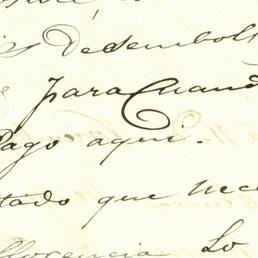 s desembols
para Cuand
Pago aqui.
tado que nece
florencia Lo